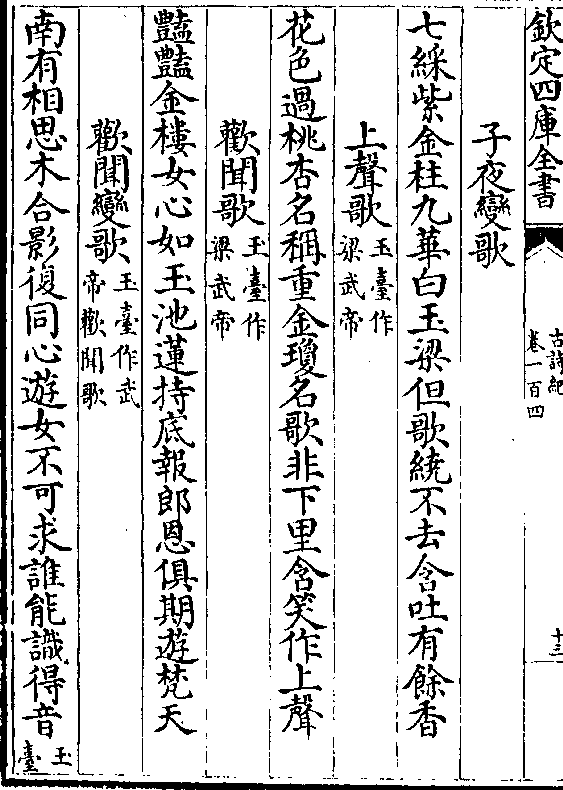 欽定四庫全書
古詩紀
卷一百四
十三
子夜變歌
七綵紫金柱九華白玉梁但歌繞不去含吐有餘香
上聲歌玉臺作梁武帝
花色過桃杏名稱重金瓊名歌非下里含笑作上聲
歡聞歌玉臺作梁武帝
豔豔金樓女心如玉池蓮持底報郎恩俱期遊梵天
歡聞變歌玉臺作武帝歡聞歌
南有相思木合影復同心遊女不可求誰能識得音玉臺